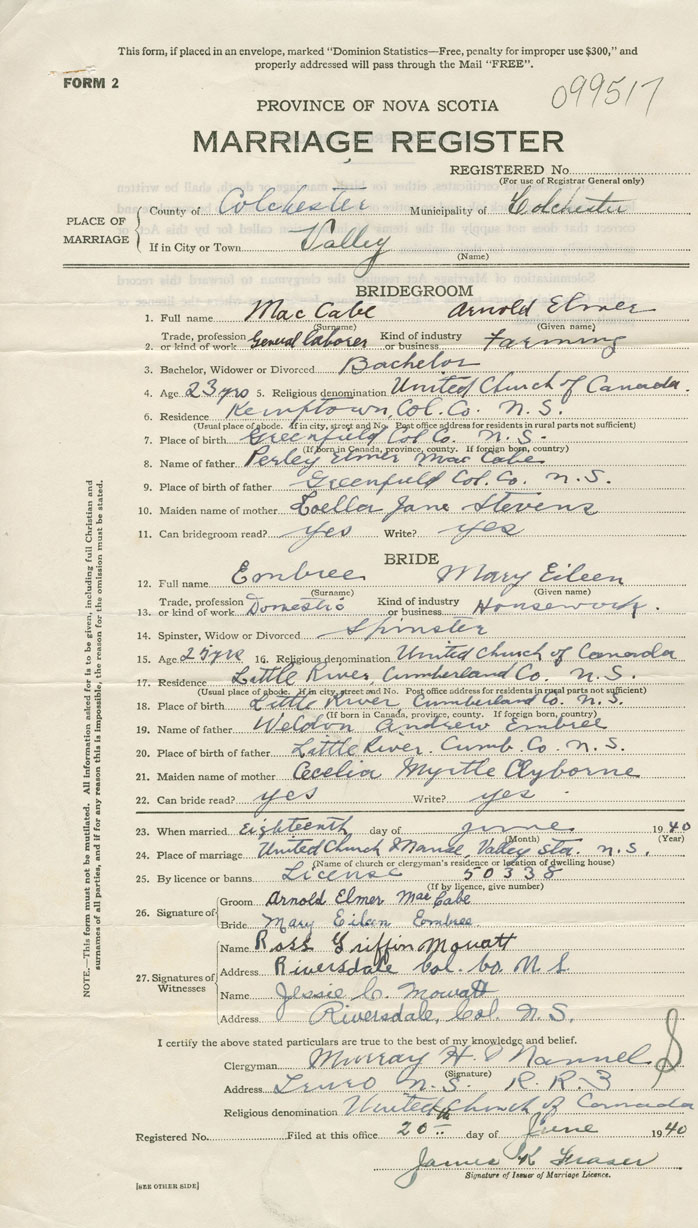 This form, if placed in an envelope, marked "Dominion Statistics—Free, penalty for improper use $300," and
properly addressed will pass through the Mail "FREE".
FORM 2
099517
PROVINCE OF NOVA SCOTIA
MARRIAGE REGISTER
REGISTERED No.
(For use of Registrar General only)
PLACE OF MARRIAGE
County of Colchester Municipality of Colchester
If in City or Town Valley
(Name)
BRIDEGROOM
1. Full name Mac Cabe Arnold Elmer
(Surname) (Given name)
2. Trade, profession or kind of work General laborer Kind of industry or business Farming
3. Bachelor, Widower or Divorced Bachelor
4. Age 23 yrs 5. Religious denomination United Church of Canada.
6. Residence Kemptown, Col. Co. N. S.
(Usual place of abode. If in city, street and No. Post office address for residents in rural parts not sufficient)
7. Place of birth Greenfield Col Co. N. S.
(If born in Canada, province, county. If foreign born, country)
8. Name of father Perley Elmer Mac Cabe
9. Place of birth of father Greenfield Col. Co. N. S.
10. Maiden name of mother Loella Jane Stevens
11. Can bridegroom read? yes Write? yes
BRIDE
12. Full name Embree Mary Eileen
(Surname) (Given name)
13. Trade, profession or kind of work Domestic Kind of industry or business Housework.
14. Spinster, Widow or Divorced Spinster
15. Age 25 yrs 16. Religious denomination United Church of Canada
17. Residence Little River Cumberland Co. N. S.
(Usual place of abode. If in city, street and No. Post office address for residents in rural parts not sufficient)
18. Place of birth Little River, Cumberland Co. N. S.
(If born in Canada, province, county. If foreign born, country)
19. Name of father Weldon Andrew Embree
20. Place of birth of father Little River. Cumb. Co. N. S.
21. Maiden name of mother Cecelia Myrtle Clyborne
22. Can bride read? yes Write? yes
23. When married Eighteenth day of June 1940
(Month) (Year)
24. Place of marriage United Church Manse, Valley Sta. N. S.
(Name of church or clergyman's residence or location of dwelling house)
25. By licence or banns License 50338
(If by licence, give number)
26. Signature of
Groom Arnold Elmer Mac Cabe
Bride Mary Eileen Embree.
27. Signatures of Witnesses
Name Ross Griffin Mowatt
Address Riversdale Col. Co. N S
Name Jessie C. Mowatt
Address Riversdale, Col. N. S.
I certify the above stated particulars are true to the best of my knowledge and belief.
Clergyman Murray H.
(Signature)
Address Truro N. S. R. R. 3
Religious denomination United Church of Canada
Registered No. Filed at this office 20th day of June 1940
James K Fraser
Signature of Issuer of Marriage Licence.
[SEE OTHER SIDE]
NOTE.—This form must not be mutilated. All information asked for is to be given, including full Christian and
surnames of all parties, and if for any reason this is impossible, the reason for the omission must be stated.